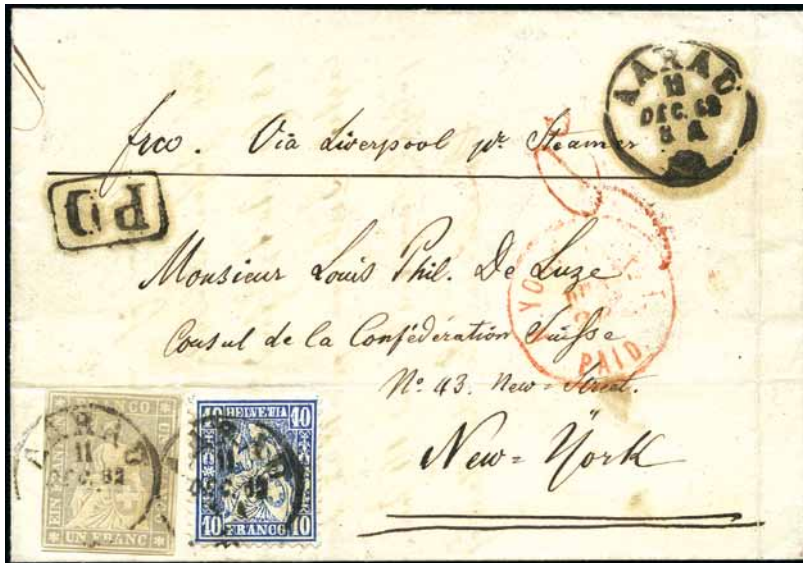 AARAU
11
DEC. 62
frco. Via Liverpool pr. Steamer
PD
Monsieur Louis Phil. De Luze
Consul de la Confédération Suisse
PAID
No. 43. New-Street.
New-York
AARAU
11
DEC. 62
FRANCO
EIN FRANKEN
UN FRANC
10 HELVETIA 10
11
10 FRANCO 10